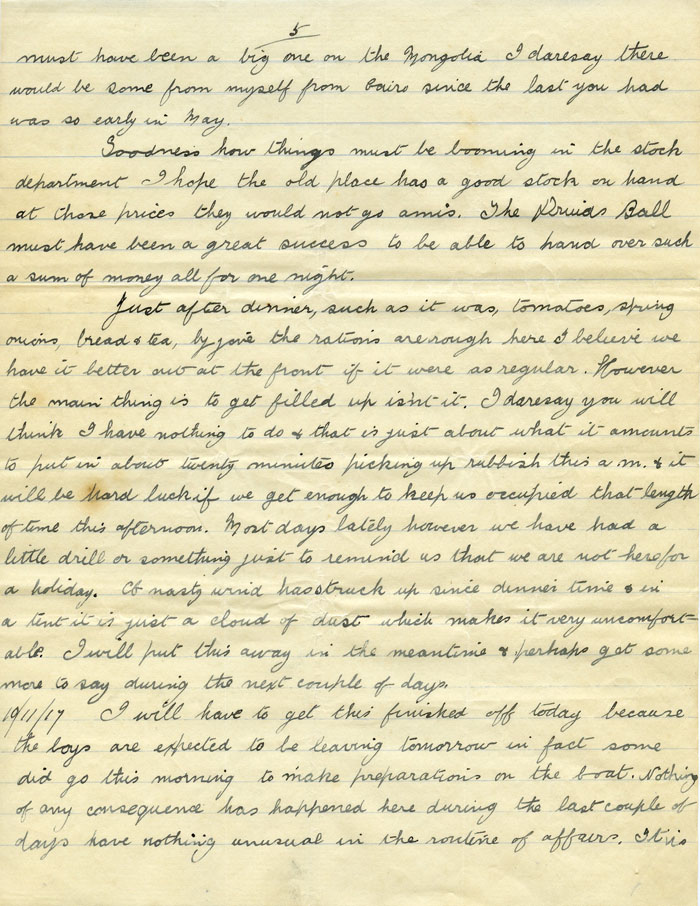 5
must have been a big one on the Mongolia I daresay there
would be some from myself from Cairo since the last you had
was so early in May.
Goodness how things must be booming in the stock
department I hope the old place has a good stock on hand
at those prices they would not go amis. The Druids Ball
must have been a great success to be able to hand over such
a sum of money all for one night.
Just after dinner, such as it was, tomatoes, spring
onions, bread & tea, by jove the rations are rough here I believe we
have it better out at the front if it were as regular. However
the main thing is to get filled up isn't it. I daresay you will
think I have nothing to do & that is just about what it amounts
to put in about twenty minutes picking up rubbish this a.m. & it
will be hard luck if we get enough to keep us occupied that length
of time this afternoon. Most days lately however we have had a
little drill or something just to remind us that we are not here for
a holiday. A nasty wind has struck up since dinner time & in
a tent it is just a cloud of dust which makes it very uncomfort-
able. I will put this away in the meantime & perhaps get some
more to say during the next couple of days.
19/11/17 I will have to get this finished off today because
the boys are expected to be leaving tomorrow in fact some
did go this morning to make preparations on the boat. Nothing
of any consequence has happened here during the last couple of
days have nothing unusual in the routine of affairs. It is